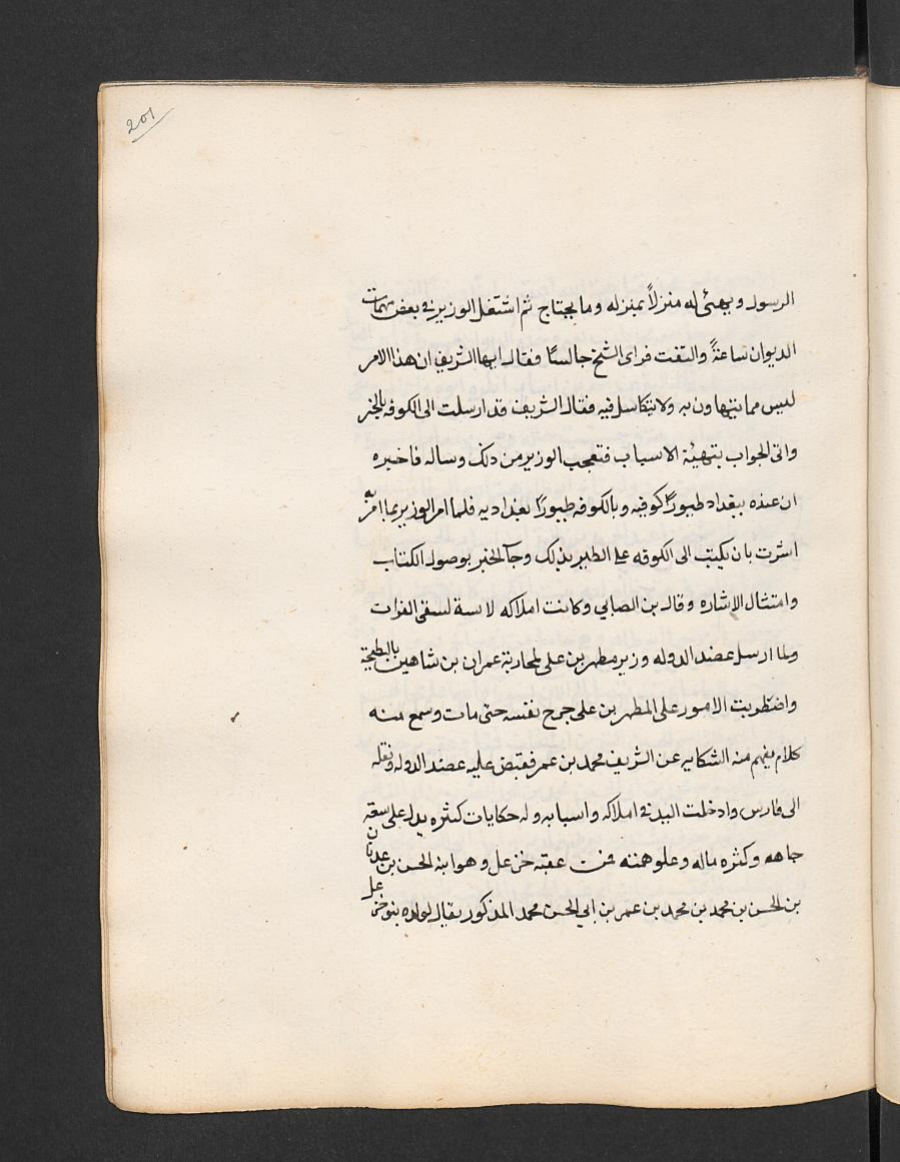 201
الرسول ويهئى له منزلاً بمنزله وما يحتاج ثم اشتغل الوزير في بعض مهمات
الديوان ساعةً والتفت فراى الشيخ جالسًا فقال ايها الشريف ان هذا الامر
ليس مما يتهاون به ولا يتكاسل فيه فقال الشريف قد ارسلت الى الكوفه بالخبر
واتى الجواب بتهيئة الاسباب فتعجب الوزير من ذلك وساله فاخبره
ان عنده ببغداد طيورًا كوفيه وبالكوفه طيورًا بغداديه فلما امر الوزير بما امر به
اشرت بان يكتب الى الكوفه على الطير بذلك وجآ الخبر بوصول الكتاب
وامتثال الاشاره وقال بن الصابي وكانت املاكه لاسة لسقى الفرات
ولما ارسل عضد الدوله وزير مطهر بن على لمحاربة عمران بن شاهين بالبطيحة
واضطربت الامور على المطهر بن على جرح نفسه حتى مات وسمع منه
كلام يفهم منه الشكايه عن الشريف محمد بن عمر فقبض عليه عضد الدوله ونقله
الى فارس وادخلت اليد في املاكه واسبابه وله حكايات كثره يدل على سعة
جاهه وكثره ماله وعلو همته فمن عقبه خزعل وهو ابنه الحسن بن عدنان
بن الحسن بن محمد بن محمد بن عمر بن ابي الحسن محمد المذكور يقال لولده بنو خزعل